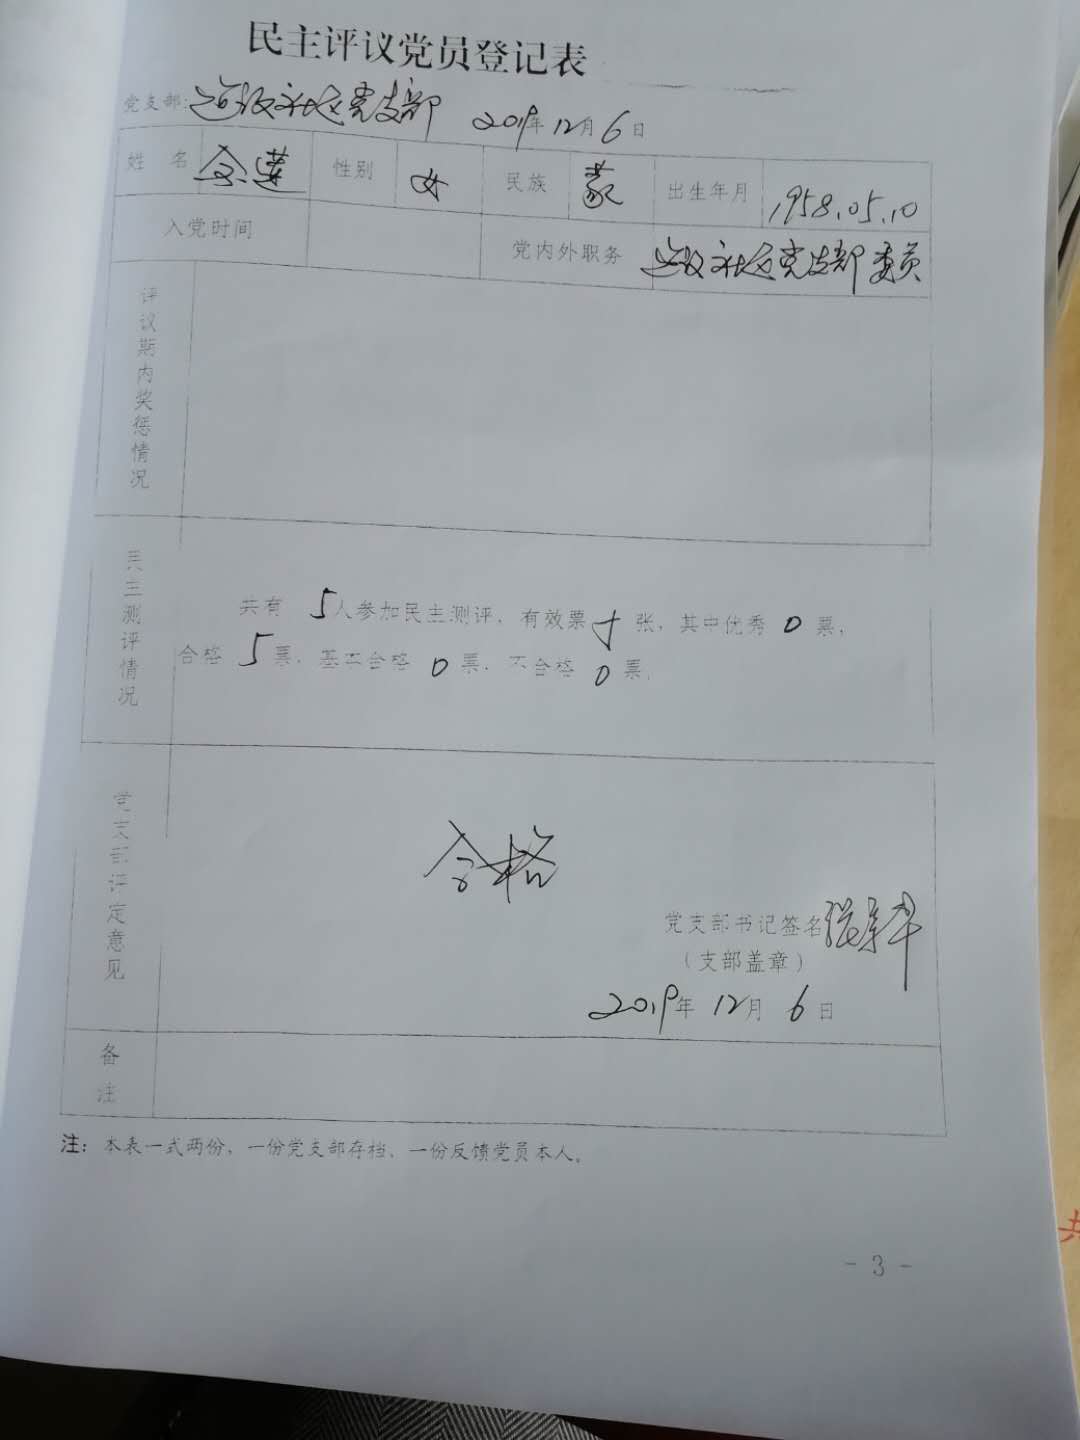 民主评议党员登记表
党支部: 社区党支部 2019年12月6日
姓 名 金莲 性别 女 民族 蒙 出生年月 1958.05.10
入党时间 党内外职务 社区党支部委员
评议期内奖惩情况
民主测评情况
共有 5人参加民主测评，有效票 张，其中优秀 0 票，
合格 5 票，基本合格 0 票，不合格 0 票。
党支部评定意见
合格
党支部书记签名
（支部盖章）
2019年 12月 6日
备注
注：本表一式两份，一份党支部存档、一份反馈党员本人。
- 3 -
共